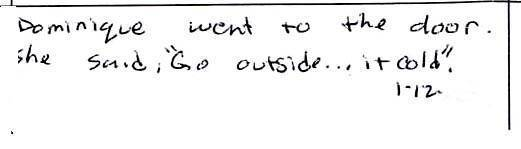 Dominique went to the door.
She said, "Go outside... it cold".
1-12.